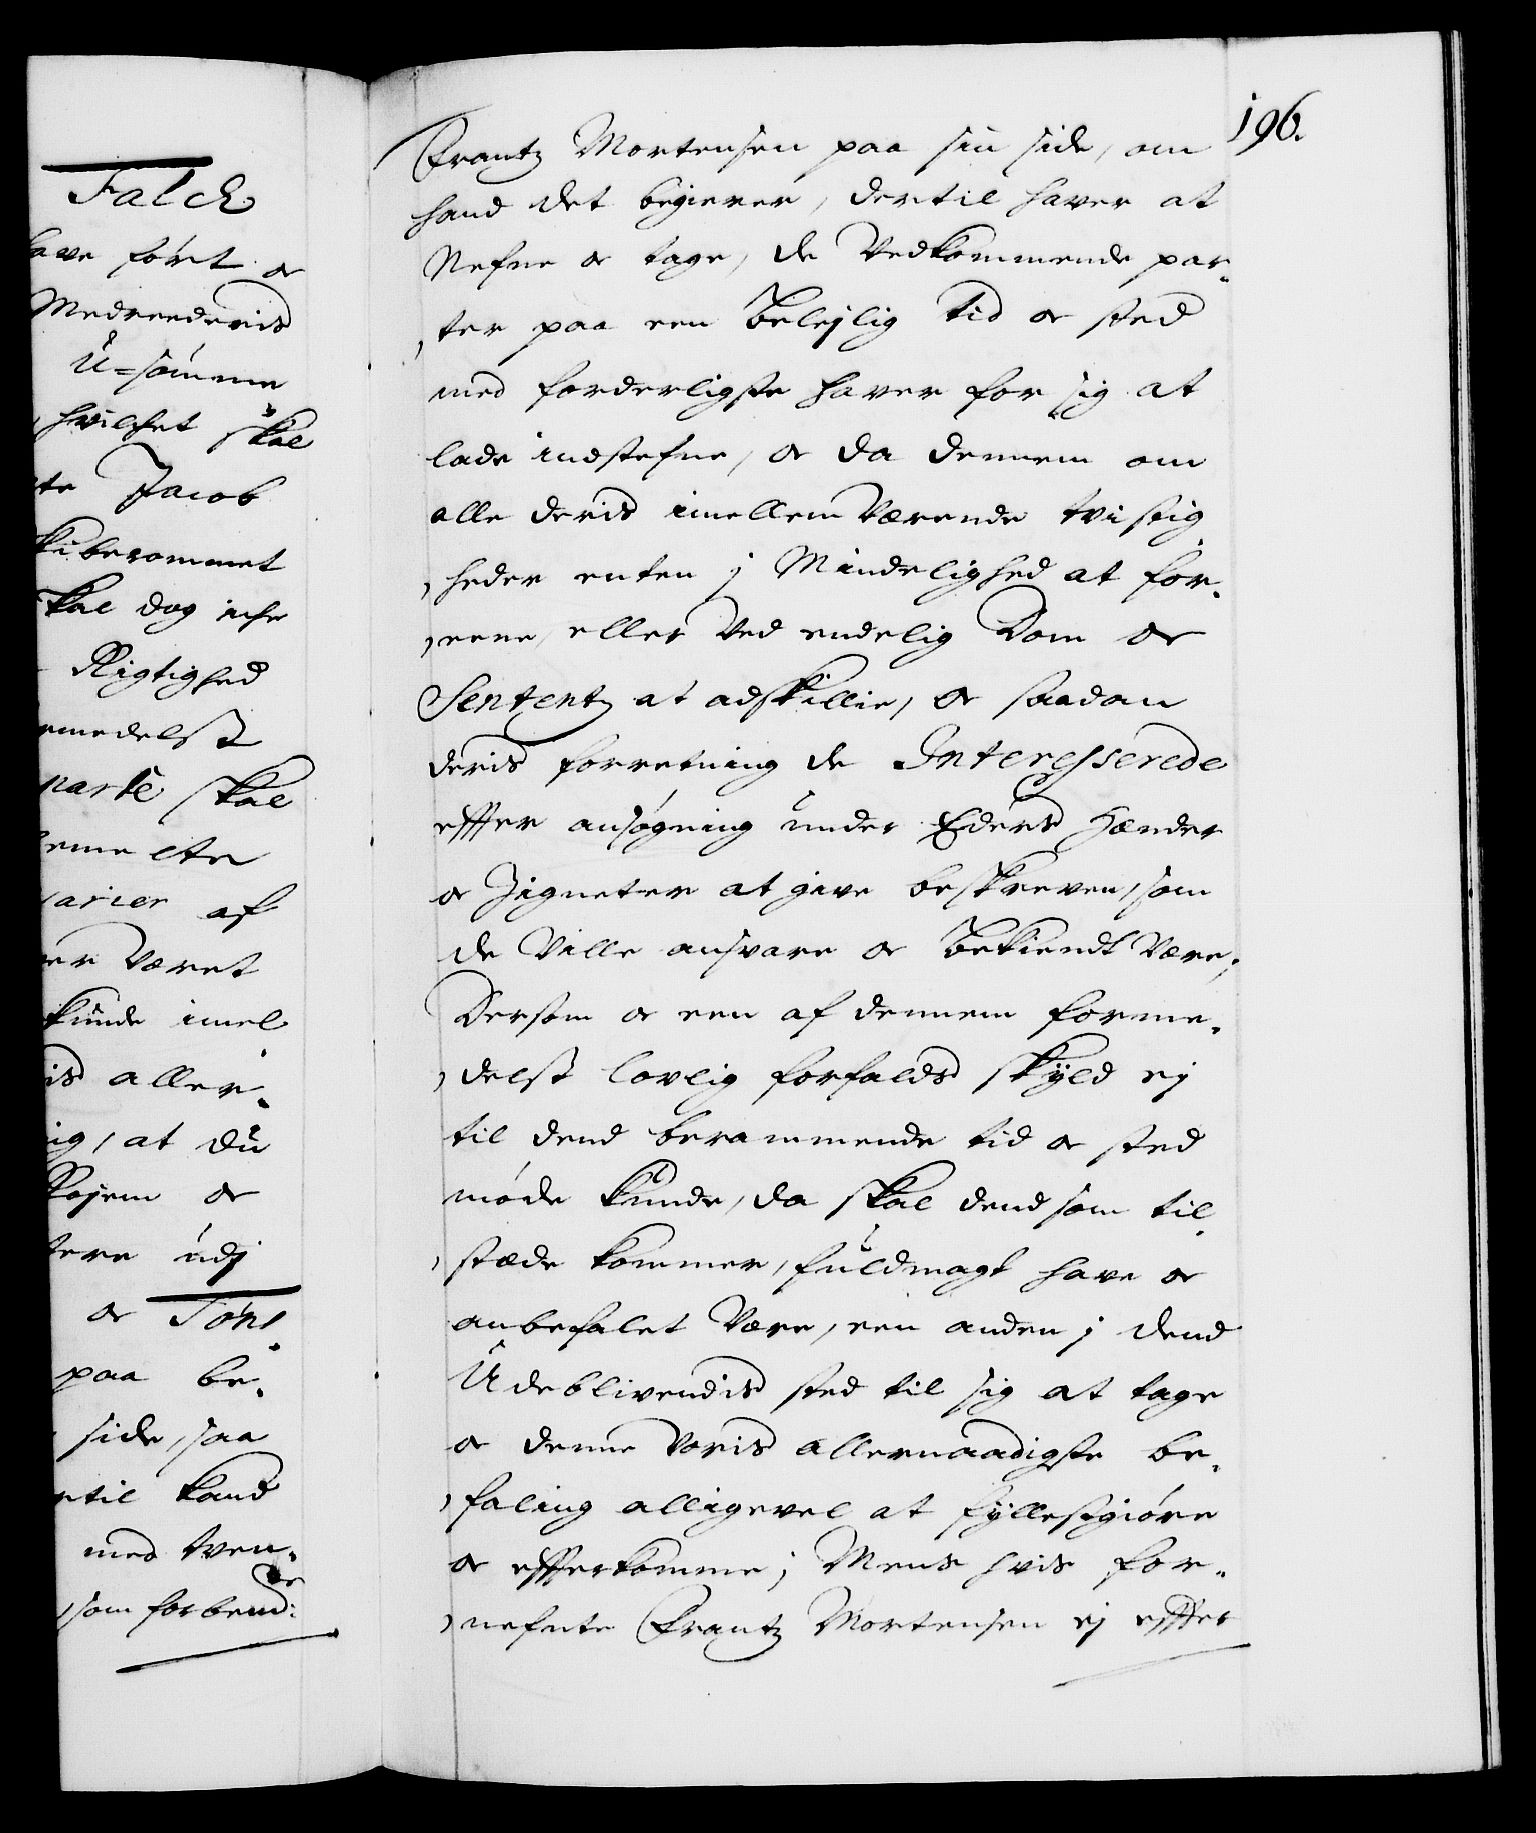 Falck
have ført og
Medreederis
U-sømme
hvilchet skal
Jacob
skiberommet
skal dog iche
Rigtighed
parte skal
af
været
kunde imel
is aller-
ig, at du
og
udj
og Føns
paa be-
side, saa
til kand
med tven-
som forbemd:te
196.
Frantz Mortensen paa sin side, om
hand det begierer, dertil haver at
Nefne og tage, de Vedkommende par-
ter paa een Belejlig tid og sted
med forderligste haver for sig at
lade indstefne, og da dennem om
alle deris imellem Værende tvistig-
heder enten j Mindelighed at for-
eene, eller Ved endelig Dom og
Sententz at adskillie, og saadan
deris forretning de Interesserede
effter ansøgning under Eders Hænder
og Zigneter at give beskreven, som
de Ville ansvare og Bekiendt Være;
Dersom og een af dennem forme-
delst lovlig forfalds skyld ej
til dend berammende tid og sted
møde kunde, da skal dend som til-
stæde kommer, fuldmagt have og
anbefalet Være, een anden j dend
Udeblivendis sted til sig at tage
og denne Voris allernaadigste be-
faling alligevel at fyllestgiøre
og effterkomme; Mens hvis for-
nefnte Frantz Mortensen ej effter